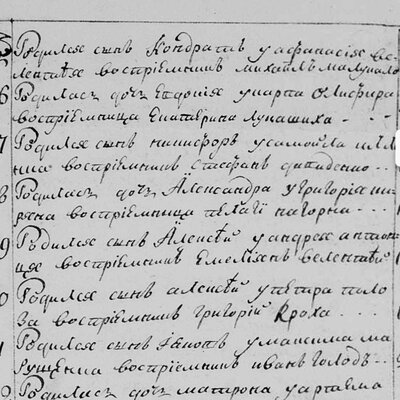 5 Родился сынъ Кондратъ у афанасія ве
лентѣя воспріемникъ михаилъ малуило
6 Родилась дочъ Евдокія у карпа
воспріемница Екатерина лупашиха
7 Родился сынъ никифоръ у самойла
воспріемникъ стефанъ
8 Родилась дочъ Александра у григорія
воспріемница пелагіи нагорна
9 Родился сынъ Алексѣй у андрея антон
цея воспріемникъ Емелиянъ велентѣй
0 Родился сынъ алексѣй у петра поло
за воспріемникъ григорій Кроха
Родился сынъ у максима ма
рущенка воспріемникъ иванъ голодъ
Родилась дочъ матрона у артема